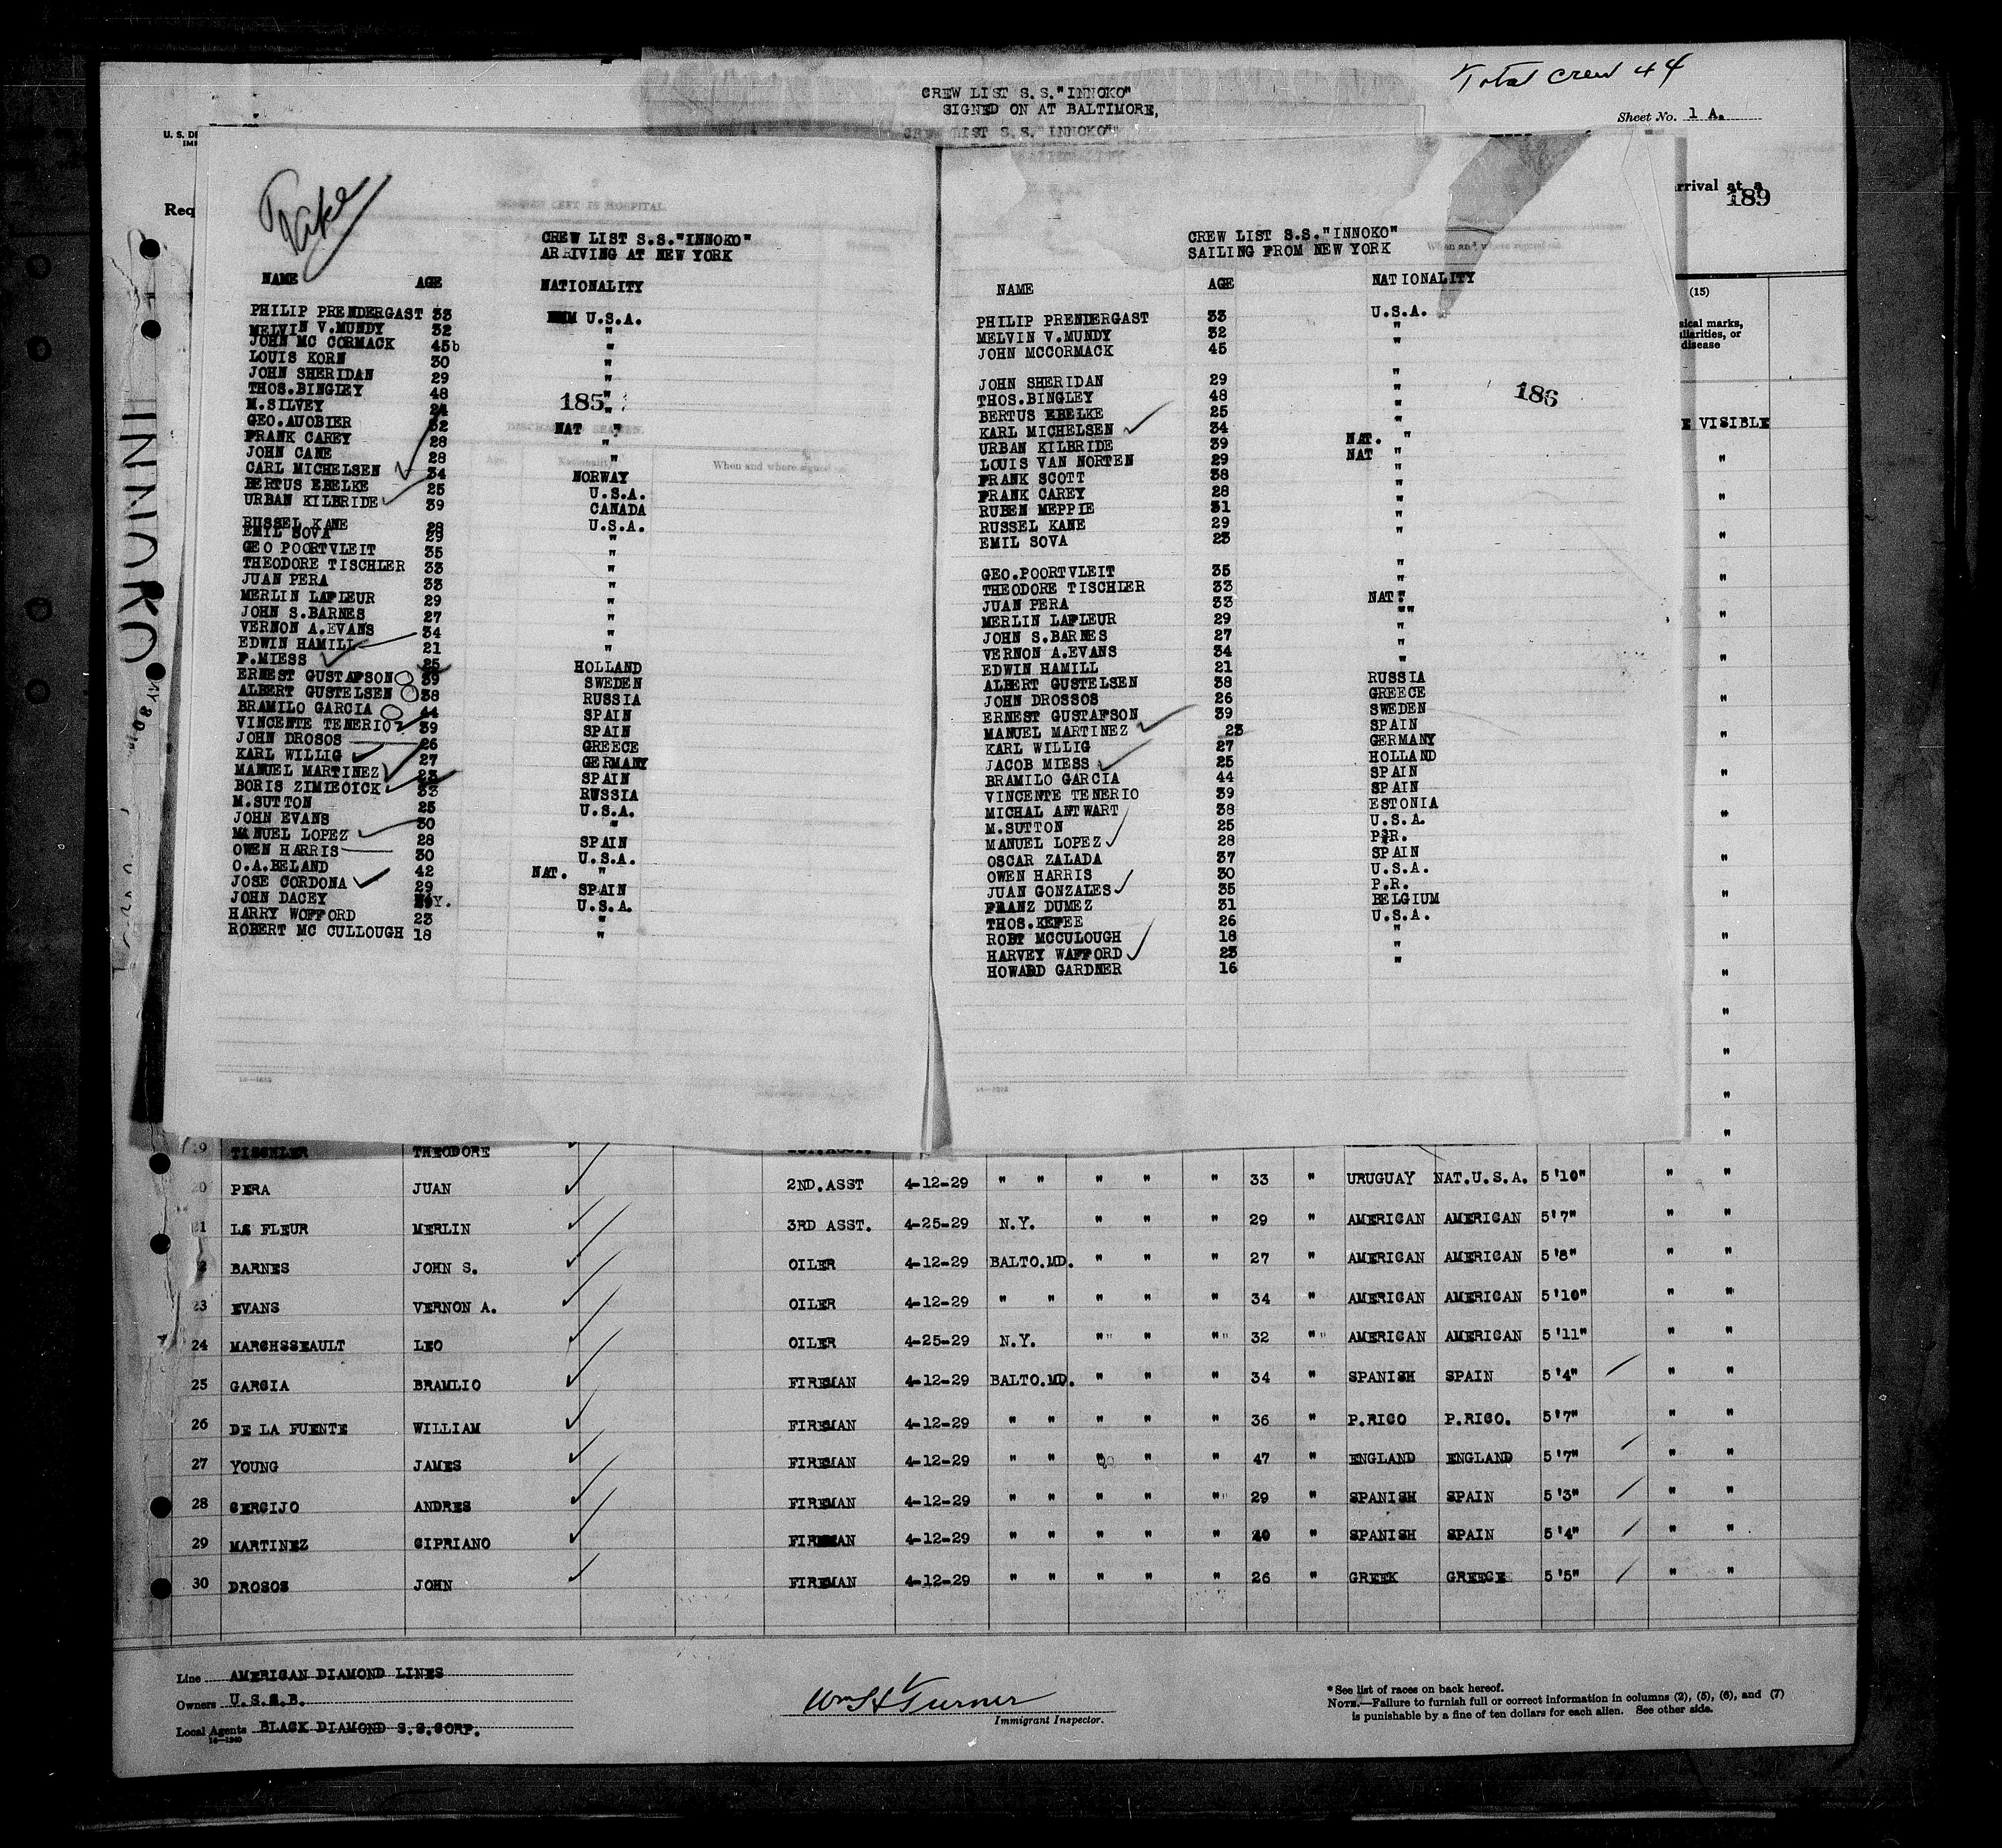 Total Crew 44
CREW LIST S.S."INNOKO"
SIGNED ON AT BALTIMORE,
CREW LIST S.S. "INNOKO"
Sheet No. 1 A.
U. S. DE
IMM
Req
rrival at a
189
INNOKO
(15)
sical marks,
uliarities, or
disease
E VISIBLE
CREW LIST S.S."INNOKO"
ARRIVING AT NEW YORK
NAME AGE NATIONALITY
PHILIP PRENDERGAST 33 U.S.A.
MELVIN V.MUNDY 32 "
JOHN MC CORMACK 45b "
LOUIS KORN 30 "
JOHN SHERIDAN 29 "
THOS.BINGLEY 48 "
M.SILVEY 24 "
185
GEO.AUOBIER 32 NAT "
FRANK CAREY 28 "
JOHN CANE 28 "
CARL MICHELSEN 34 NORWAY
BERTUS EBELKE 25 U.S.A.
URBAN KILBRIDE 39 CANADA
RUSSEL KANE 28 U.S.A.
EMIL SOVA 29 "
GEO POORTVLEIT 35 "
THEODORE TISCHLER 33 "
JUAN PERA 33 "
MERLIN LAFLEUR 29 "
JOHN S.BARNES 27 "
VERNON A.EVANS 34 "
EDWIN HAMILL 21 "
P.MIESS 25 HOLLAND
ERNEST GUSTAFSON 39 SWEDEN
ALBERT GUSTELSEN 38 RUSSIA
BRAMILO GARCIA 44 SPAIN
VINCENTE TENERIO 39 SPAIN
JOHN DROSOS 26 GREECE
KARL WILLIG 27 GERMANY
MANUEL MARTINEZ 23 SPAIN
BORIS ZIMIECICK 33 RUSSIA
M.SUTTON 25 U.S.A.
JOHN EVANS 30 "
MANUEL LOPEZ 28 SPAIN
OWEN HARRIS 30 U.S.A.
O.A.BELAND 42 NAT. "
JOSE CORDONA 29 SPAIN
JOHN DACEY U.S.A.
HARRY WOFFORD 23 "
ROBERT MC CULLOUGH 18 "
CREW LIST S.S."INNOKO"
SAILING FROM NEW YORK
NAME AGE NATIONALITY
PHILIP PRENDERGAST 33 U.S.A.
MELVIN V.MUNDY 32 "
JOHN MCCORMACK 45 "
JOHN SHERIDAN 29 "
THOS.BINGLEY 48 "
186
BERTUS EBELKE 25 "
KARL MICHELSEN 34 "
URBAN KILBRIDE 39 NAT. "
LOUIS VAN NORTEN 29 NAT "
FRANK SCOTT 38 "
FRANK CAREY 28 "
RUBEN MEPPIE 31 "
RUSSEL KANE 29 "
EMIL SOVA 23 "
GEO.POORTVLEIT 35 "
THEODORE TISCHLER 33 "
JUAN PERA 33 NAT."
MERLIN LAFLEUR 29 ""
JOHN S.BARNES 27 "
VERNON A.EVANS 34 "
EDWIN HAMILL 21 "
ALBERT GUSTELSEN 38 RUSSIA
JOHN DROSSOS 26 GREECE
ERNEST GUSTAFSON 39 SWEDEN
MANUEL MARTINEZ 23 SPAIN
KARL WILLIG 27 GERMANY
JACOB MIESS 25 HOLLAND
BRAMILO GARCIA 44 SPAIN
VINCENTE TENERIO 39 SPAIN
MICHAL ANTWART 38 ESTONIA
M.SUTTON 25 U.S.A.
MANUEL LOPEZ 28 P.R.
OSCAR ZALADA 37 SPAIN
OWEN HARRIS 30 U.S.A.
JUAN GONZALES 35 P.R.
FRANZ DUMEZ 31 BELGIUM
THOS.KEFEE 26 U.S.A.
ROBT MCCULOUGH 18 "
HARVEY WAFFORD 23 "
HOWARD GARDNER 16 "
19 TISCHLER THEODORE
20 PERA JUAN 2ND.ASST 4-12-29 " " " " " 33 " URUGUAY NAT.U.S.A. 5'10" " "
21 LE FLEUR MERLIN 3RD ASST. 4-25-29 N.Y. " " " 29 " AMERICAN AMERICAN 5'7" " "
2 BARNES JOHN S. OILER 4-12-29 BALTO.MD. " " " 27 " AMERICAN AMERICAN 5'8" " "
23 EVANS VERNON A. OILER 4-12-29 " " " " " 34 " AMERICAN AMERICAN 5'10" " "
24 MARCHSSEAULT LEO OILER 4-25-29 N.Y. " " " 32 " AMERICAN AMERICAN 5'11" " "
25 GARCIA BRAMLIO FIREMAN 4-12-29 BALTO.MD. " " " 34 " SPANISH SPAIN 5'4" " "
26 DE LA FUENTE WILLIAM FIREMAN 4-12-29 " " " " " 36 " P.RICO P.RICO. 5'7" " "
27 YOUNG JAMES FIREMAN 4-12-29 " " " " " 47 " ENGLAND ENGLAND 5'7" " "
28 CERCIJO ANDRES FIREMAN 4-12-29 " " " " " 29 " SPANISH SPAIN 5'3" " "
29 MARTINEZ CIPRIANO FIREMAN 4-12-29 " " " " " 40 " SPANISH SPAIN 5'4" " "
30 DROSOS JOHN FIREMAN 4-12-29 " " " " " 26 " GREEK GREECE 5'5" " "
Line AMERICAN DIAMOND LINES
Owners U.S.S.B.
Local Agents BLACK DIAMOND S.S.CORP.
Wm H Turner
Immigrant Inspector.
* See list of races on back hereof.
NOTE.—Failure to furnish full or correct information in columns (2), (5), (6), and (7)
is punishable by a fine of ten dollars for each alien. See other side.